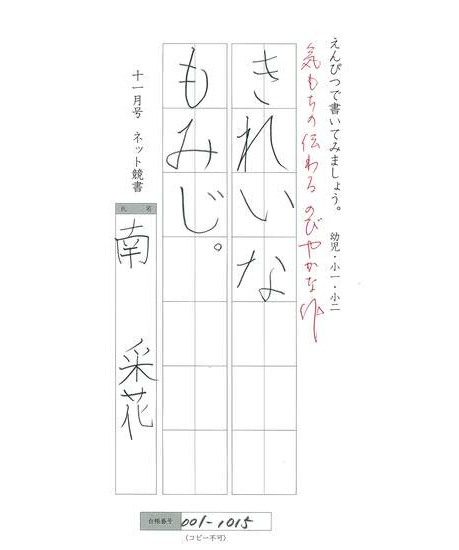 えんぴつで書いてみましょう。 幼児・小一・小二
気もちの伝わるのびやかな作
きれいな
もみじ。
十一月号 ネット競書
氏名
南 采花
台帳番号 001-1015
(コピー不可)